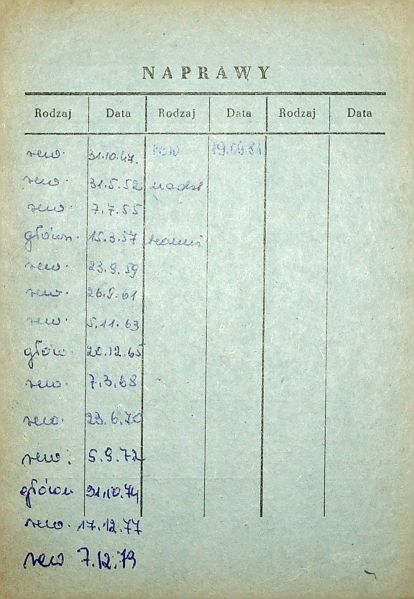 NAPRAWY
Rodzaj Data Rodzaj Data Rodzaj Data
rew. 31.10.47. rew 19.09.81
rew. 31.5.52
rew. 7.7.55
główn. 15.3.57
rew. 23.9.59
rew. 26.5.61
rew. 5.11.63
główn. 20.12.65
rew. 7.3.68
rew. 23.6.70
rew. 5.9.72
główn 31.10.74
rew. 17.12.77
rew 7.12.79